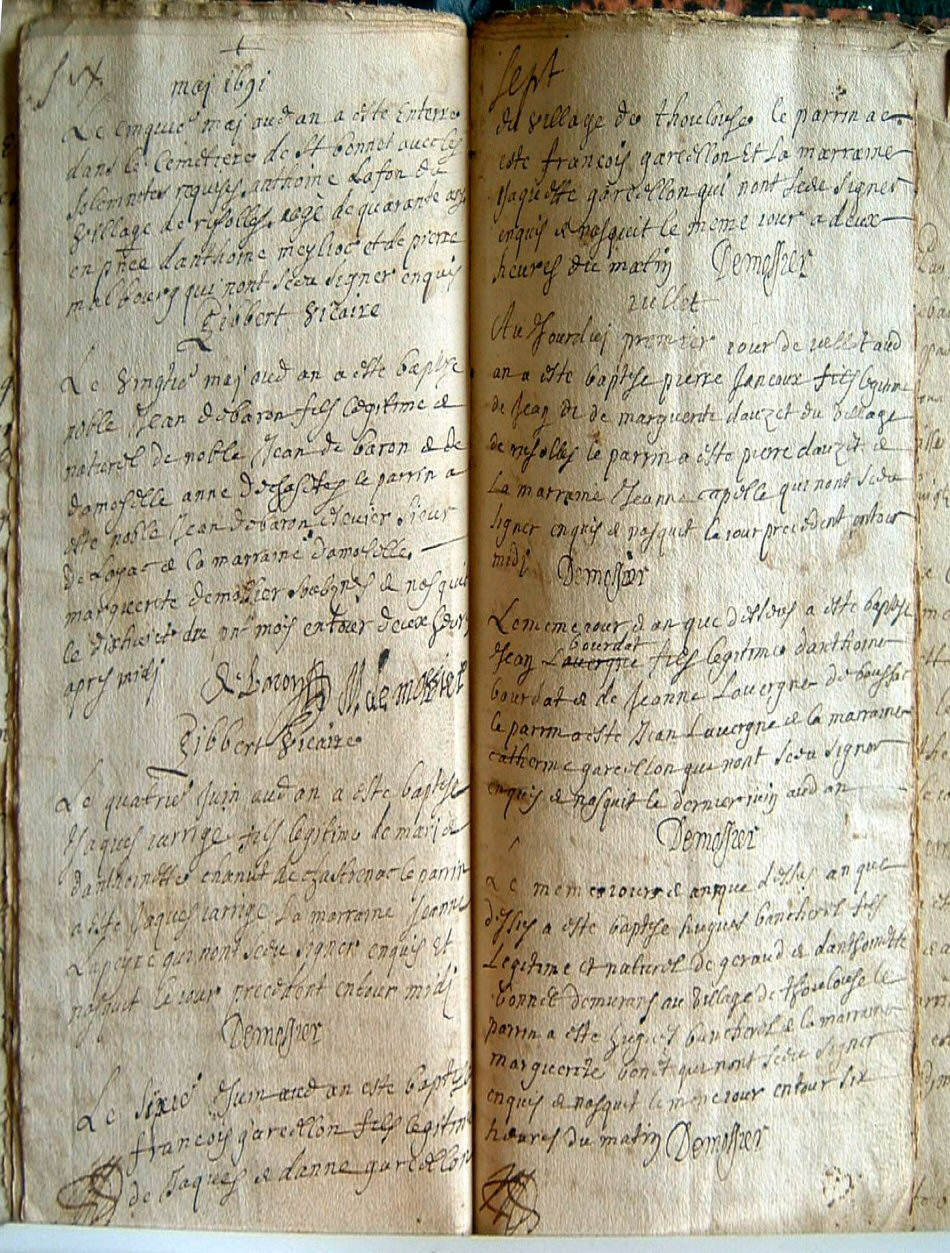 Six
maj 1691
Le cinquie maj aud an a este Enterre
dans le Cemetiere de St bonnet avec les
solemnites requises anthoine Lafon du
village de rusolles aagé de quarante ans
en pnce danthoine meylioc et de pierre
malbourg qui nont sceu signer enquis
Gibbert Vicaire
Le vingtie maj aud an a este baptise
noble Jean debaron fils legitime &
naturel de noble Jean de baron & de
damoiselle anne le parrin a
este noble Jean debaron Sieur
de Loyac & la marraine damoiselle
marguerite & nasquit
le dixhuict du pnt mois entour deux heures
apres midi
Gibbert Vicaire
Le quatrie Juin aud an a este baptise
Jaques Jarrige fils legitime de marj &
danthoinette chanut de le parrin
a este Jaques Jarrige La marraine Jeanne
Lapeyre qui nont sceu signer enquis Et
nasquit le jour precedent entour midj
Demossier
Le sixie Juin aud an este baptise
francois garcellon fils legitime
de Jaques & danne garcellon
Sept
du village de thoulouse le parrin a
este francois garcellon Et La marraine
Jaquette garcellon qui nont sceu signer
enquis & nasquit le meme jour a deux
heures du matin Demossier
Juillet
Au Jourdhuj premier jour de Juillet aud
an a este baptise pierre Janoaux fils legitime
de Jean & de marguerite dauzet du village
de rusolles le parrin a este pierre dauzet &
La marraine Jeanne capelle qui nont sceu
signer enquis & nasquit le jour precedent entour
midi Demossier
Le meme jour & an que dessus a este baptise
bourdat
Jean Lavergne fils legitime danthoine
bourdat & de Jeanne Lavergne de boussac
le parrin a este Jean Lavergne & la marraine
catherine garcellon qui nont sceu signer
enquis & nasquit le dernier juin aud an
Demossier
Le meme jour & an que dessus an que
dessus a este baptise hugues bancherel fils
Legitime et naturel de geraud & danthoinette
bonnet demeurans au village de thoulouse le
parrin a este hugues bancherel & la marraine
marguerite bonet qui nont sceu signer
enquis & nasquit le meme jour entour six
heures du matin Demossier